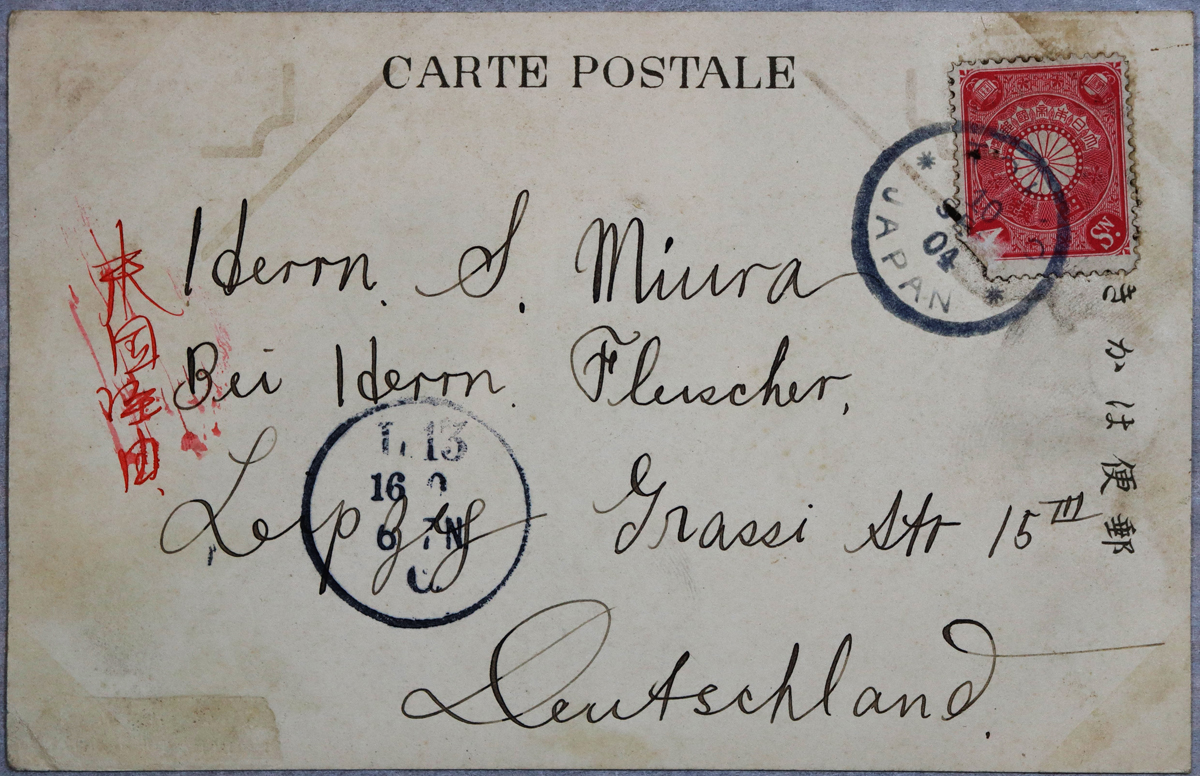 CARTE POSTALE
JAPAN
04
5 Sn.
きかは便郵
米国経由
Herrn. S. Miura
Bei Herrn. Fleischer,
L. 13
16
6 N
Leipzig Grassi Str 15 III
Deutschland.